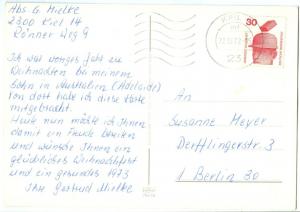 Abs. G. Mielke
2300 Kiel 14
Rönner Weg 9
Ich war voriges Jahr zu
Weihnachten bei meinem
Sohn in Australien (Adelaide)
Von dort habe ich diese Karte
mitgebracht.
Heute nun möchte ich Ihnen
damit ein Freude bereiten
und wünsche Ihnen ein
glückliches Weihnachtsfest
und ein gesundes 1973
Ihre Gertrud Mielke
KIEL
23
30
An
Susanne Meyer
Derfflingerstr. 3
1 Berlin 30